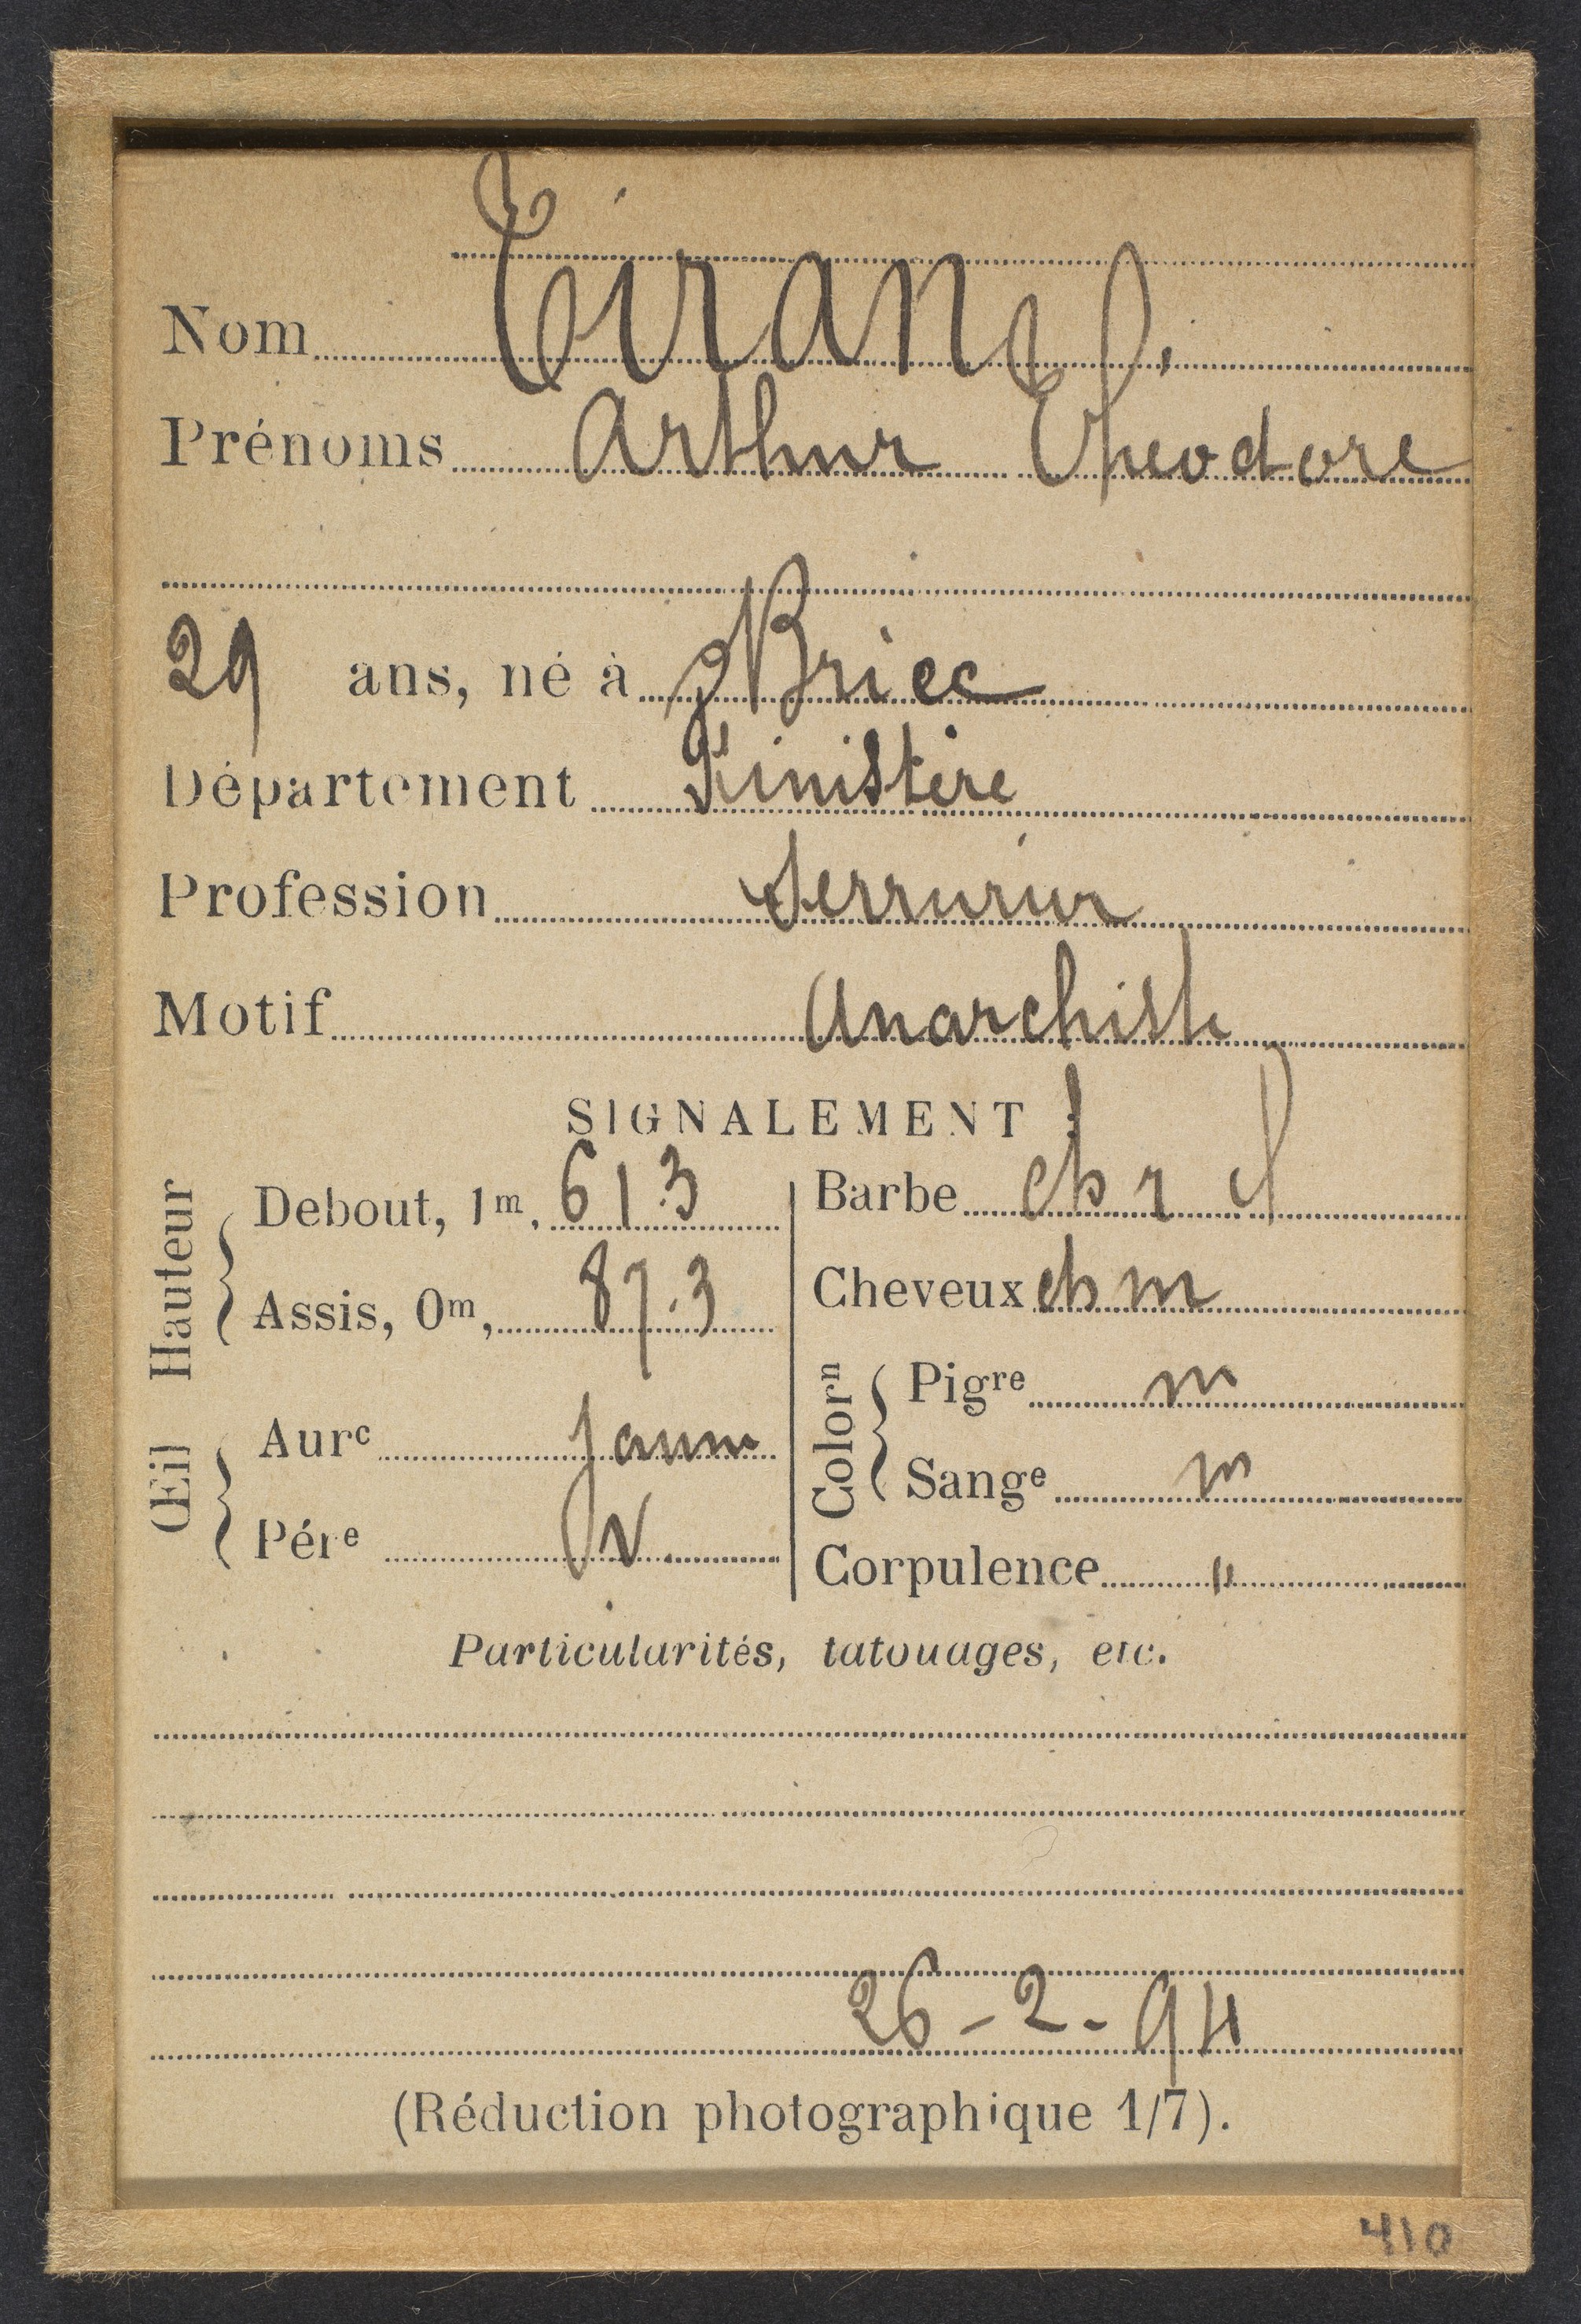 Nom Tirand
Prénoms Arthur Theodore
29 ans, né à Briec
Département Finistère
Profession Serrurier
Motif Anarchiste
SIGNALEMENT
Hauteur
Debout, 1m, 61.3
Assis, 0m, 87.3
Œil
Aure jaune
Pére v
Barbe ch r
Cheveux ch m
Colorn
Pigre m
Sange m
Corpulence "
Particularités, tatouages, etc.
26-2-94
(Réduction photographique 1/7).
410